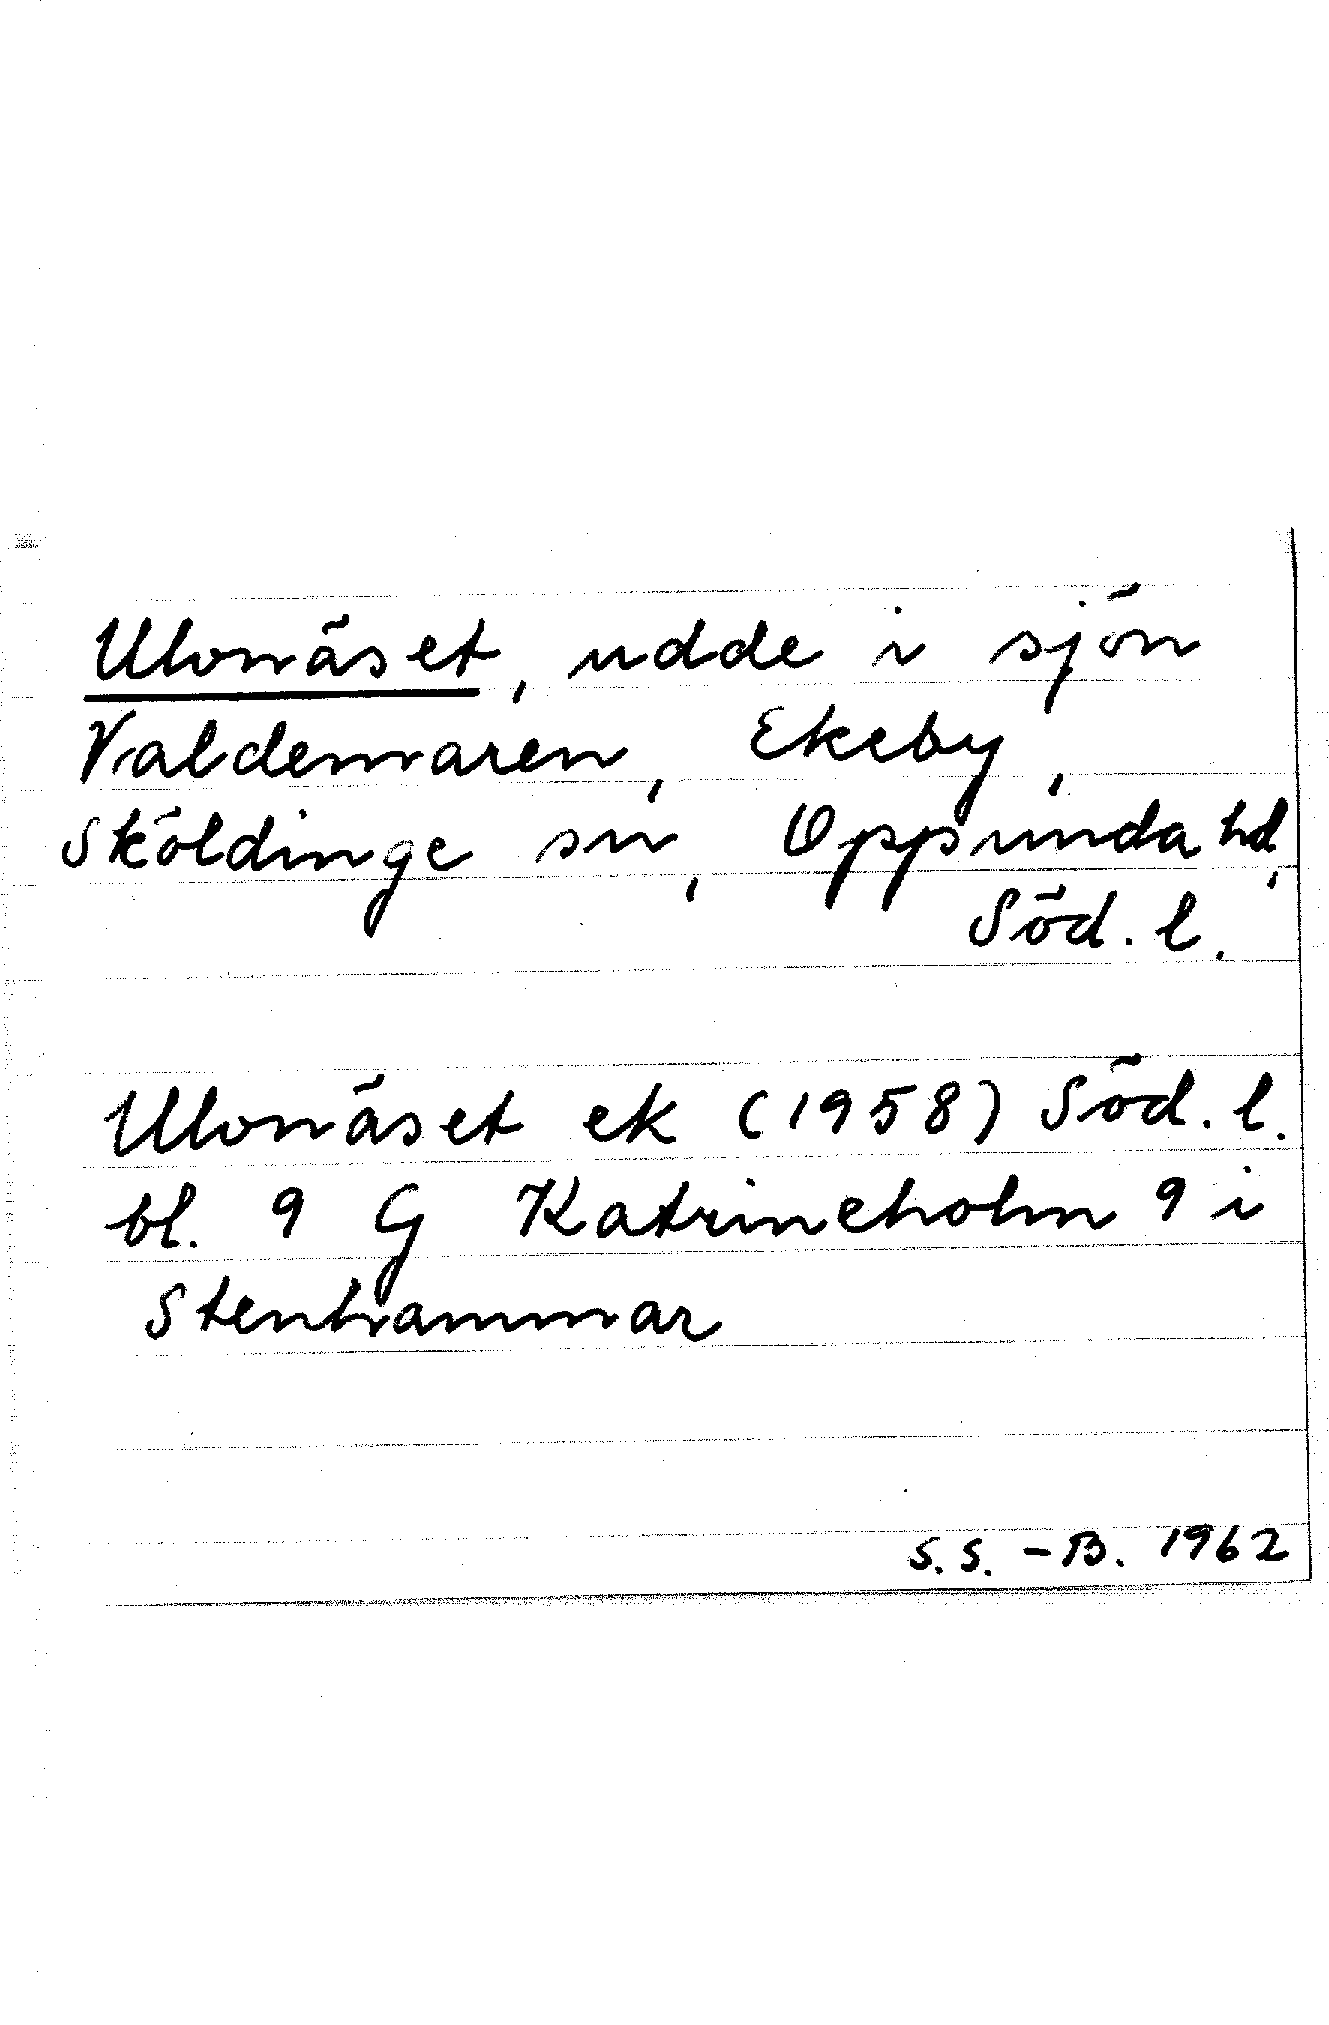 Ulvnäset, udde i sjön
Valdemaren, Ekeby,
Sköldinge sn, Oppunda hd,
Söd. l.
Ulvnäset ek (1958) Söd. l.
bl. 9 G Katrineholm 9 i
Stenhammar
S. S. - B. 1962